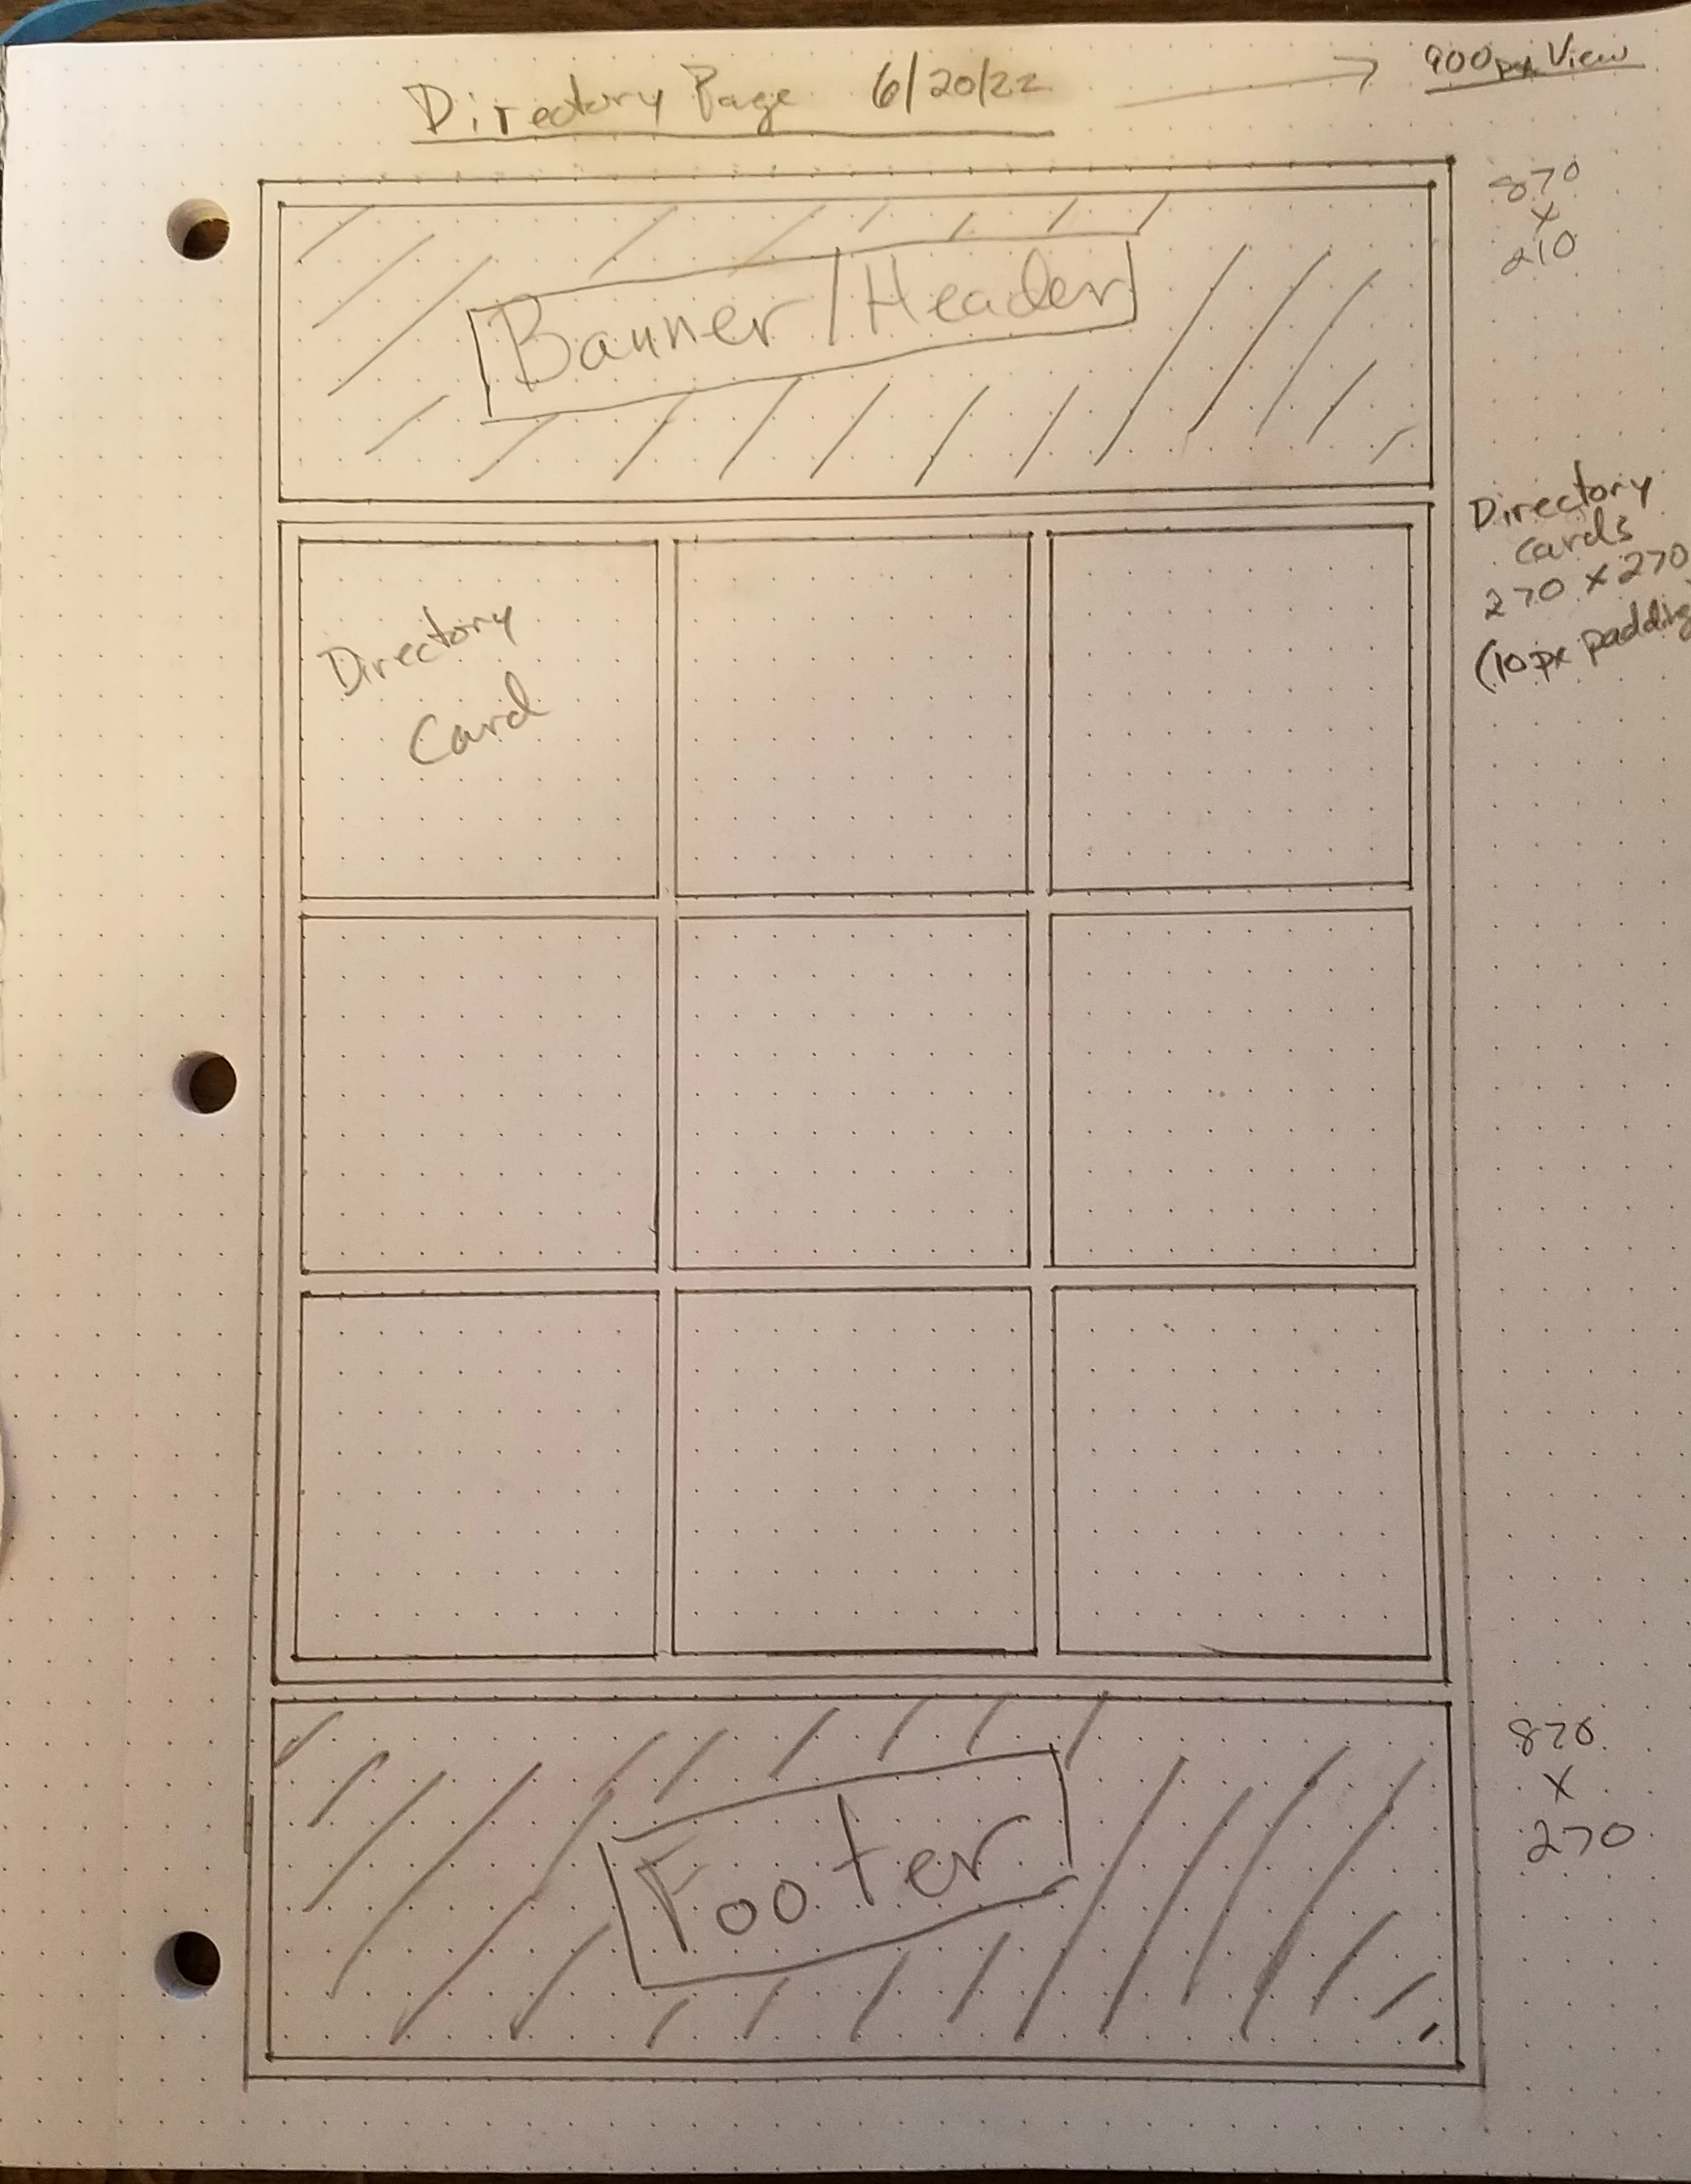 Directory Page 6/20/22 → 900px View
870
x
210
Banner/Header
Directory
cards
270 x 270
(10px padding
Directory
Card
870
x
270
Footer